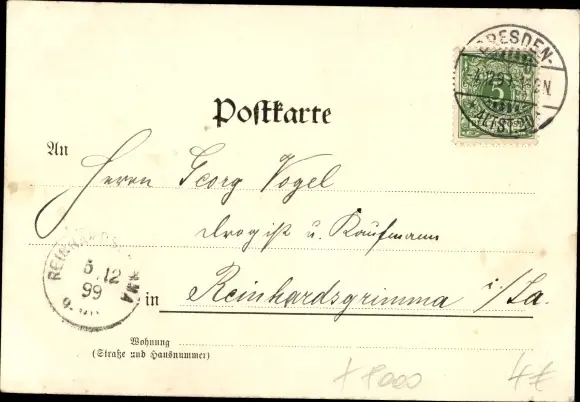 DRESDEN-
5
ALTST. 20
Postkarte
An
Herrn Georg Vogel
Drogist u. Kaufmann
in Reinhardsgrimma i/Sa.
5.12
99
Wohnung
(Straße und Hausnummer)
4€